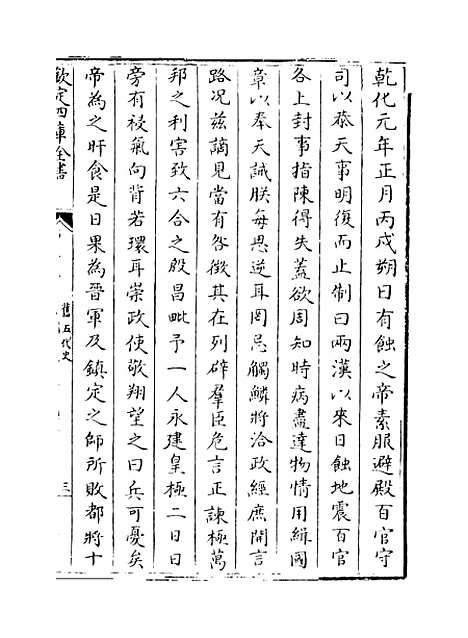 乾化元年正月丙戌朔日有蝕之帝素服避殿百官守
司以恭天事明復而止制曰兩漢以來日蝕地震百官
各上封事指陳得失蓋欲周知時病盡達物情用緝國
章以奉天誡朕每思逆耳罔忌觸鱗將洽政經庶開言
路况兹謫見當有咎徴其在列辟羣臣危言正諫極萬
邦之利害致六合之殷昌毗予一人永建皇極二日日
旁有祲氣向背若環耳崇政使敬翔望之曰兵可憂矣
帝為之旰食是日果為晉軍及鎮定之師所敗都將十
欽定四庫全書
舊五代史
三